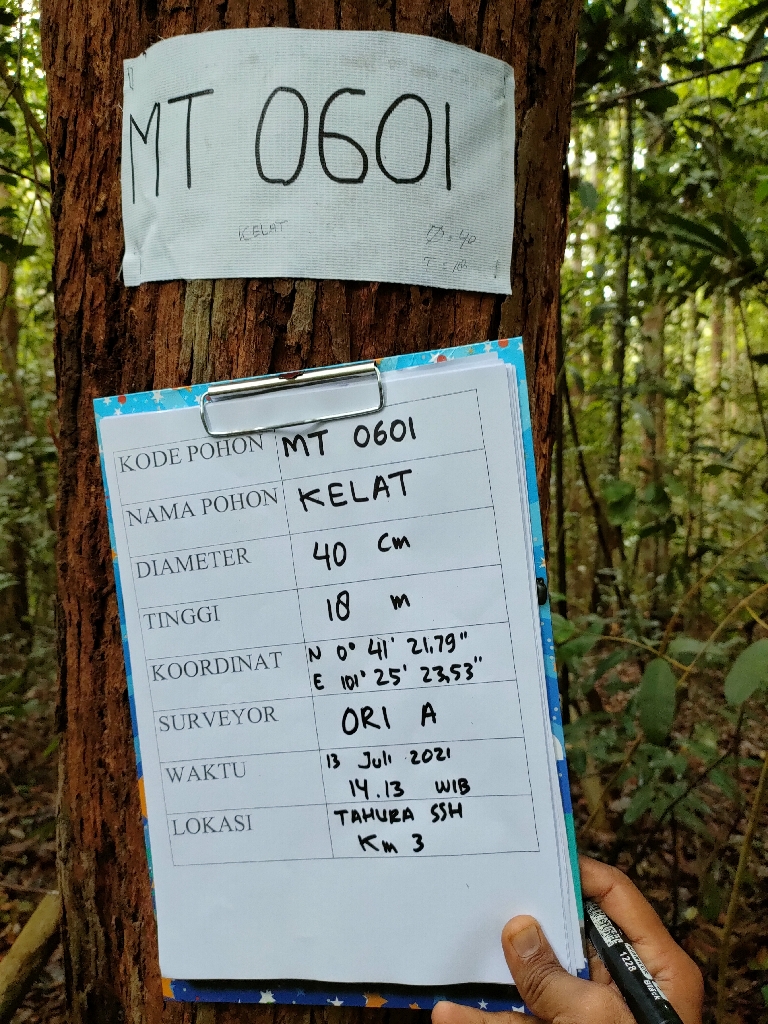 MT 0601
KELAT
D : 40
T : 18
KODE POHON MT 0601
NAMA POHON KELAT
DIAMETER 40 Cm
TINGGI 18 m
KOORDINAT N 0° 41' 21,79"
E 101° 25' 23,53"
SURVEYOR ORI A
WAKTU 13 Juli 2021
14.13 WIB
LOKASI TAHURA SSH
Km 3
1228